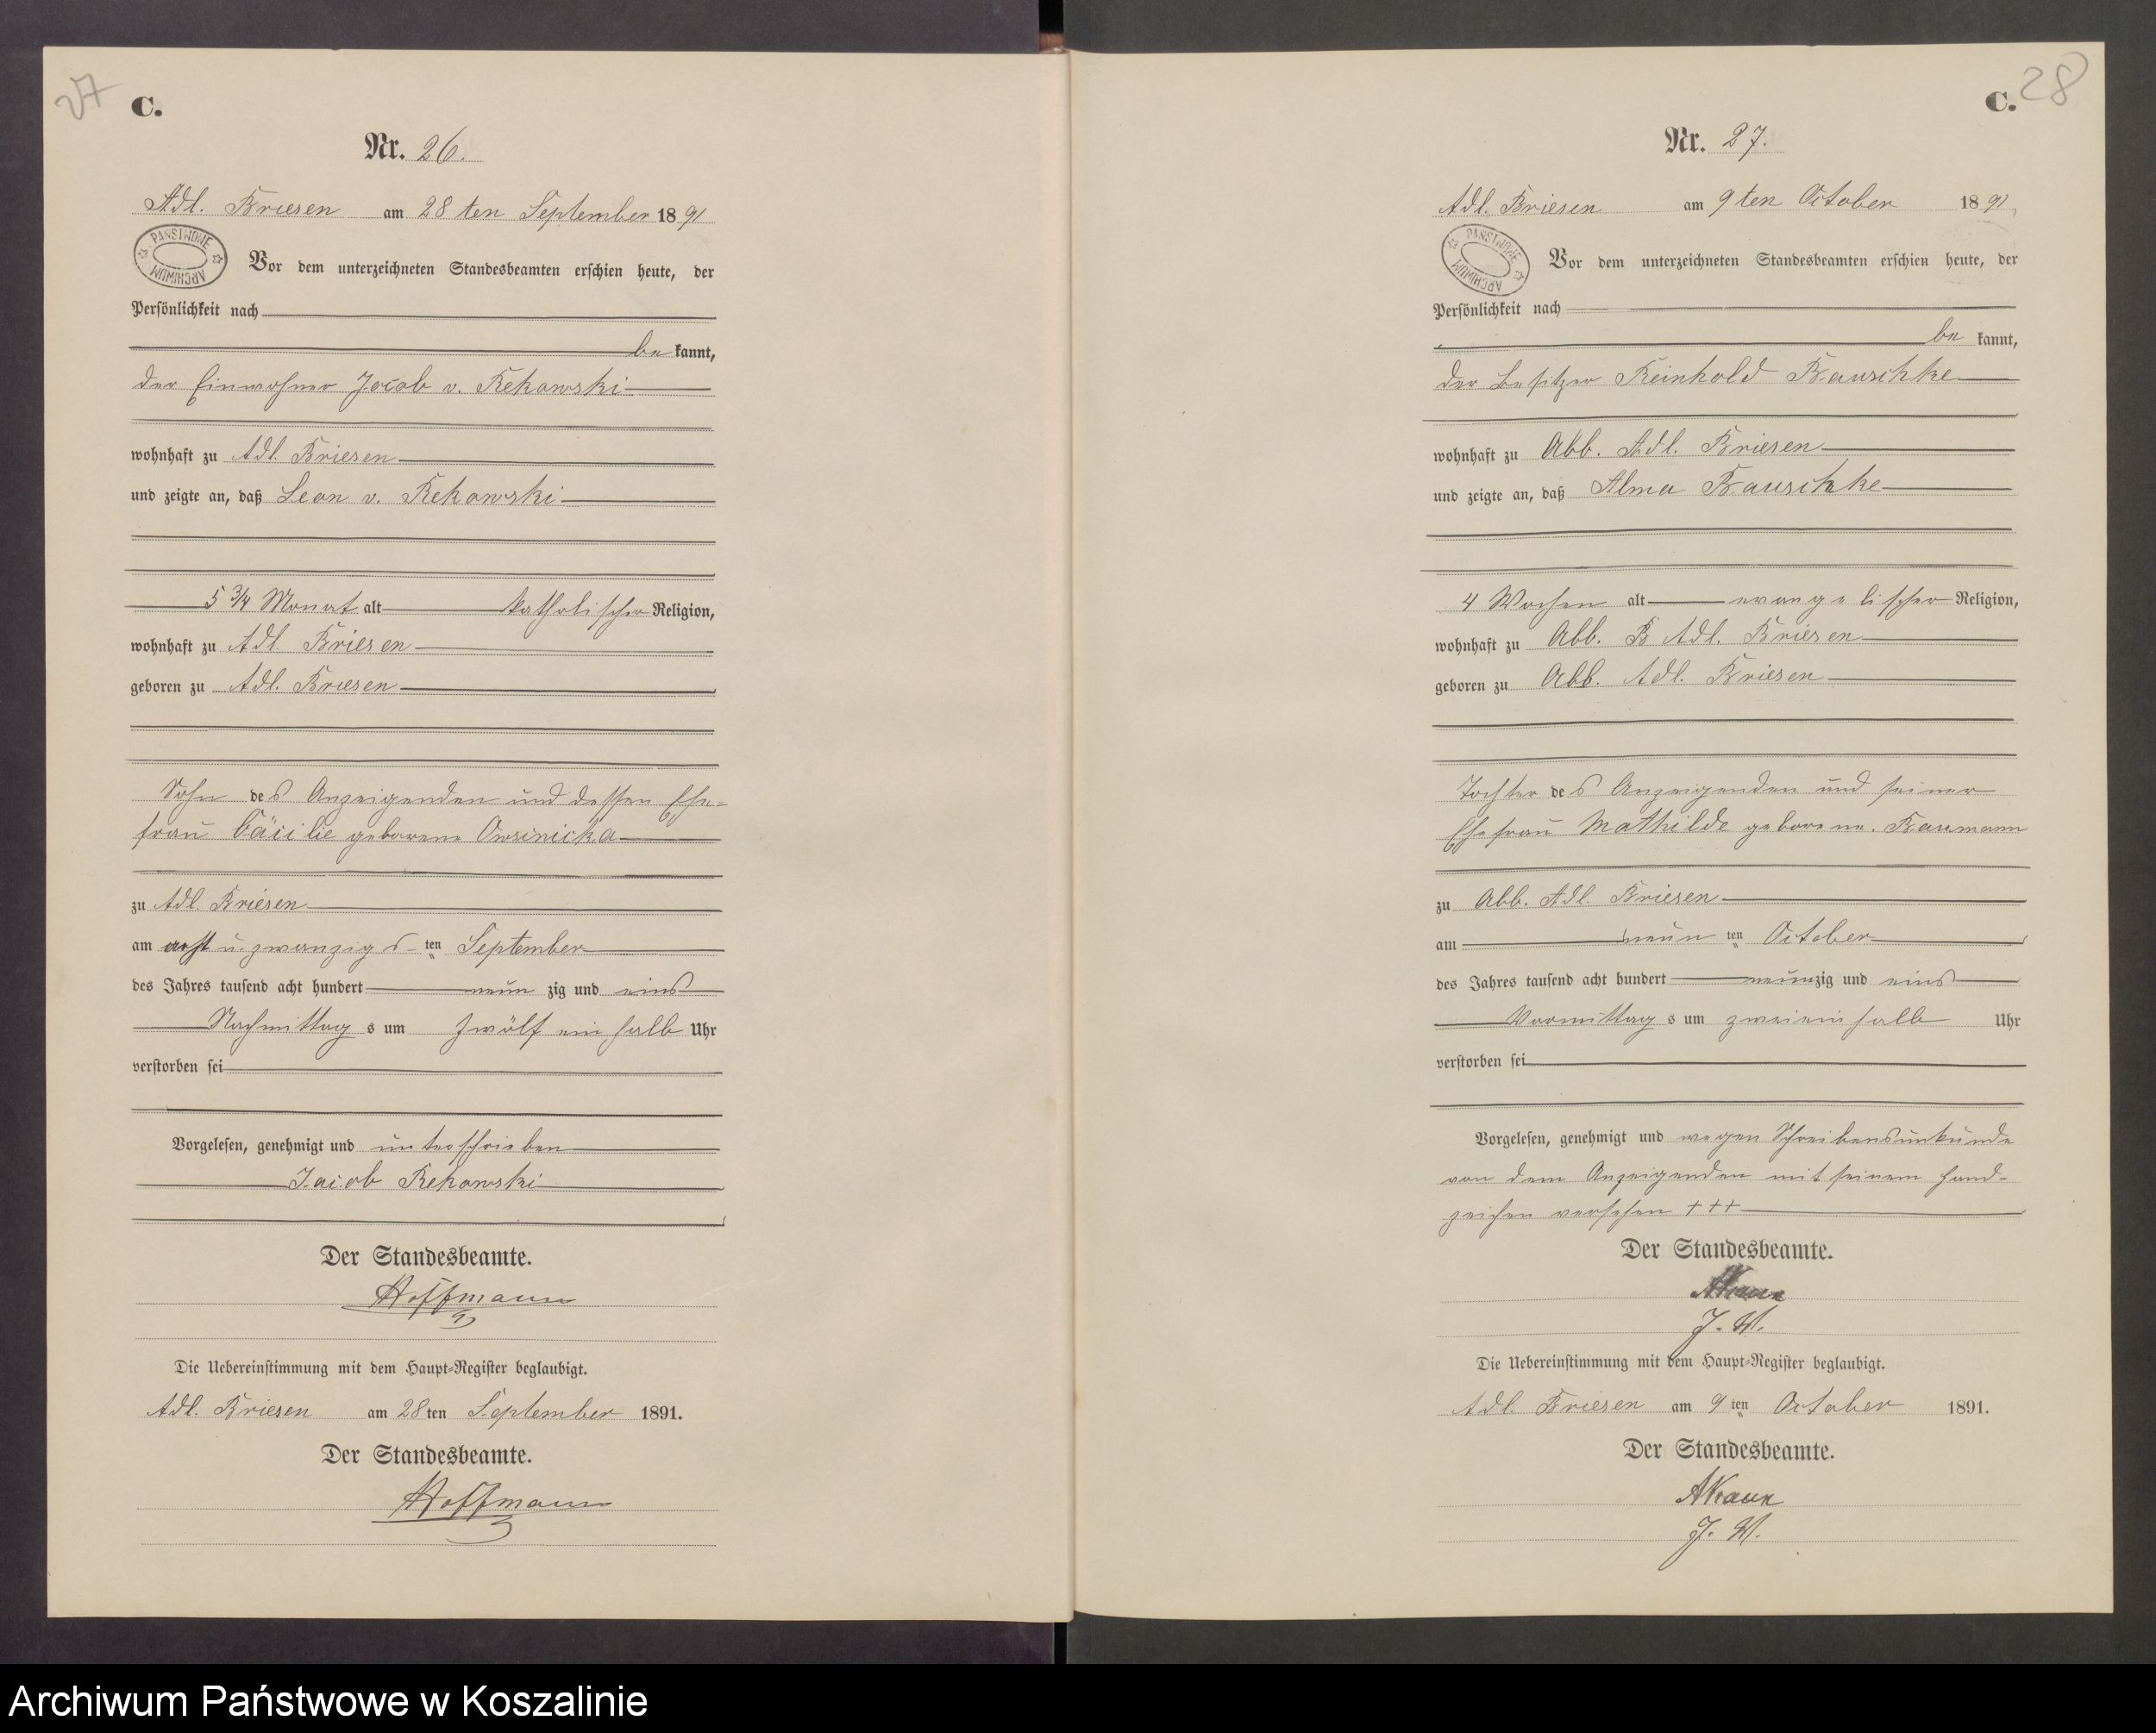 27
C.
Nr. 26.
Adl. Briesen am 28ten September 1891
PANSTWOWE ARCHIWUM
Vor dem unterzeichneten Standesbeamten erschien heute, der
Persönlichkeit nach
be kannt,
der Einwohner Jacob v. Rekowski
wohnhaft zu Adl. Briesen
und zeigte an, daß Leon v. Rekowski
5 3/4 Monat alt katholischer Religion,
wohnhaft zu Adl. Briesen
geboren zu Adl. Briesen
Sohn des Anzeigenden und dessen Ehe-
frau Cäcilie geborene
zu Adl. Briesen
am acht u. zwanzigsten September
des Jahres tausend acht hundert neunzig und eins
Nachmittags um zwölf ein halb Uhr
verstorben sei
Vorgelesen, genehmigt und unterschrieben
Jacob Rekowski
Der Standesbeamte.
Hoffmann
Die Uebereinstimmung mit dem Haupt-Register beglaubigt.
Adl. Briesen am 28ten September 1891.
Der Standesbeamte.
Hoffmann
28
C.
Nr. 27.
Adl. Briesen am 9ten October 1891
PANSTWOWE ARCHIWUM
Vor dem unterzeichneten Standesbeamten erschien heute, der
Persönlichkeit nach
be kannt,
der Besitzer Reinhold Bauschke
wohnhaft zu Abb. Adl. Briesen
und zeigte an, daß Alma Bauschke
4 Wochen alt evangelischer Religion,
wohnhaft zu Abb. B Adl. Briesen
geboren zu Abb. Adl. Briesen
Tochter des Anzeigenden und seiner
Ehefrau Mathilde geborene. Baumann
zu Abb. Adl. Briesen
am neunten October
des Jahres tausend acht hundert neunzig und eins
Vormittags um zwei ein halb Uhr
verstorben sei
Vorgelesen, genehmigt und wegen Schreibensunkunde
von dem Anzeigenden mit seinem Hand-
zeichen versehen +++
Der Standesbeamte.
J. V.
Die Uebereinstimmung mit dem Haupt-Register beglaubigt.
Adl. Briesen am 9ten October 1891.
Der Standesbeamte.
J. V.
Archiwum Państwowe w Koszalinie